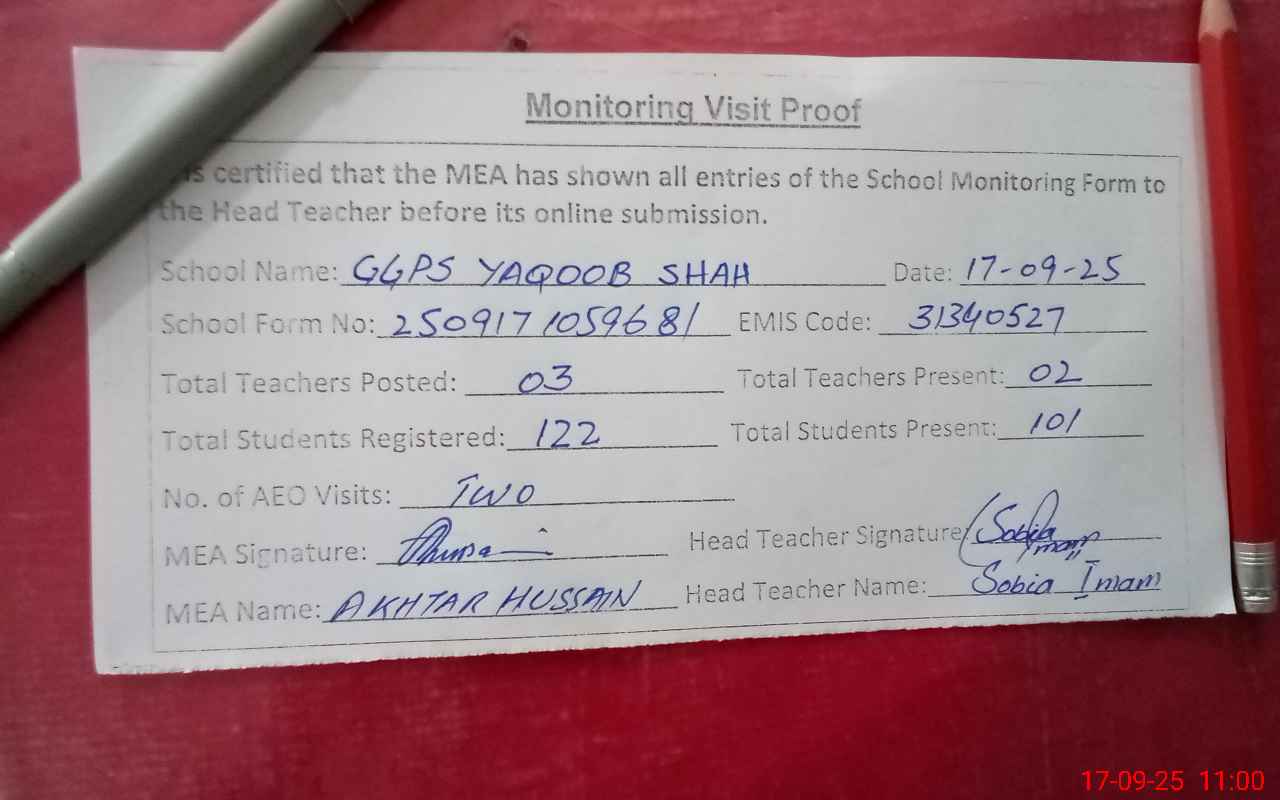 Monitoring Visit Proof
is certified that the MEA has shown all entries of the School Monitoring Form to
the Head Teacher before its online submission.
School Name: GGPS YAQOOB SHAH Date: 17-09-25
School Form No: 2509171059681 EMIS Code: 31340527
Total Teachers Posted: 03 Total Teachers Present: 02
Total Students Registered: 122 Total Students Present: 101
No. of AEO Visits: TWO
MEA Signature: Head Teacher Signature Sobia Imam
MEA Name: AKHTAR HUSSAIN Head Teacher Name: Sobia Imam
17-09-25 11:00